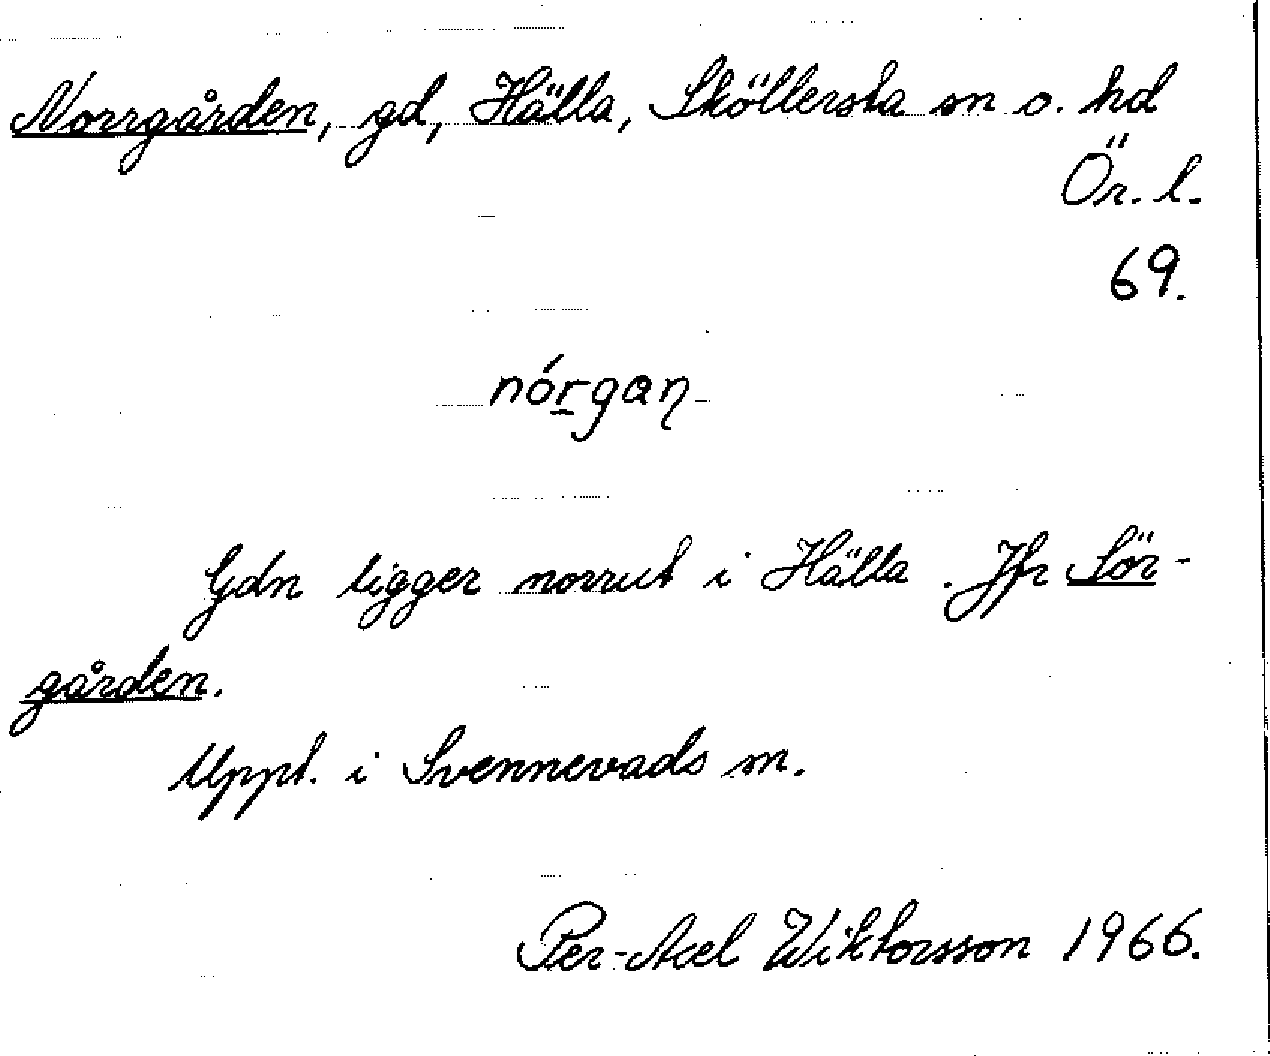 Norrgården, gd, Hälla, Sköllersta sn o. hd
Ör. l.
69.
nórgaƞ
Gdn ligger norrut i Hälla. Jfr Sör-
gården.
Uppt. i Svennevads sn.
Per-Axel Wiktorsson 1966.